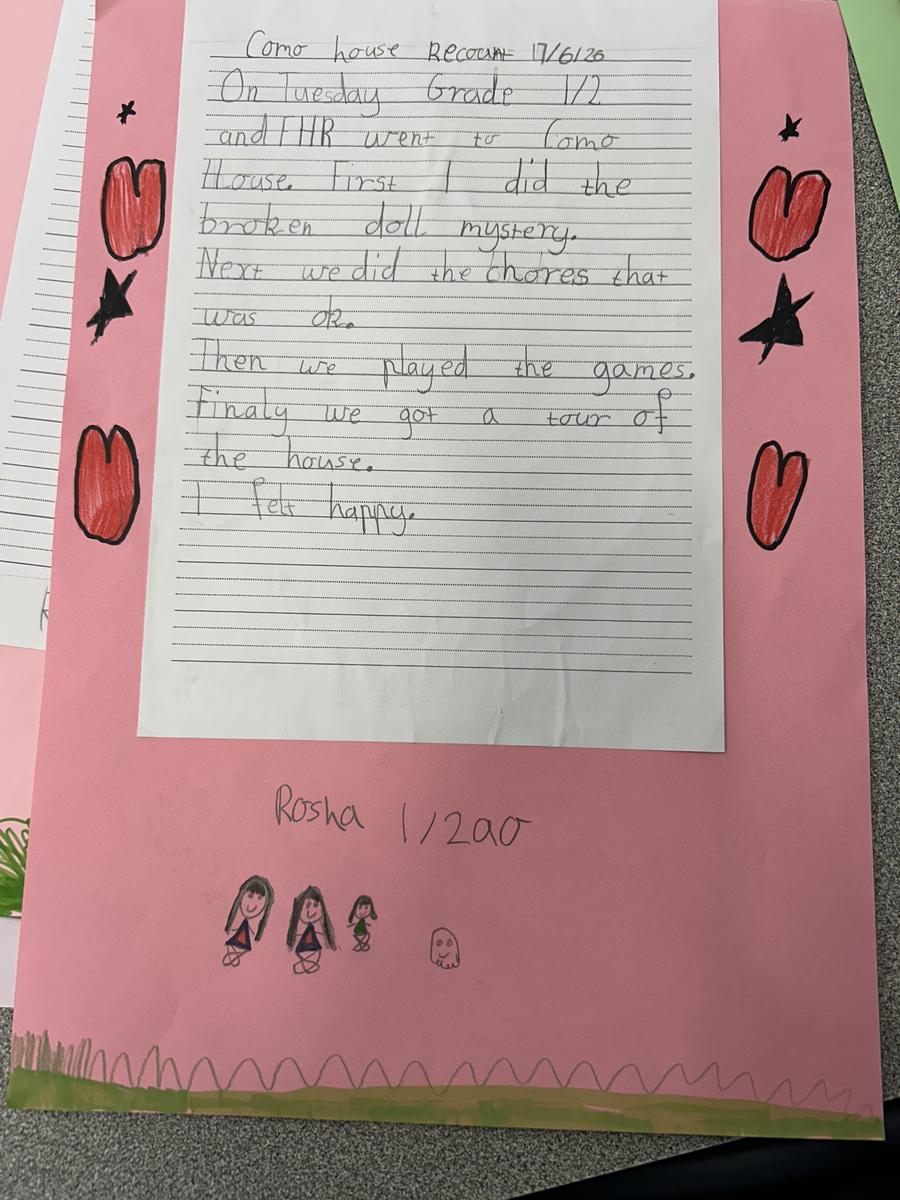 Como house Recount 17/6/26
On Tuesday Grade 1/2
and FHR went to Como
House. First I did the
broken doll mystery.
Next we did the chores that
was ok.
Then we played the games.
Finaly we got a tour of
the house.
I felt happy.
Rosha 1/2ao